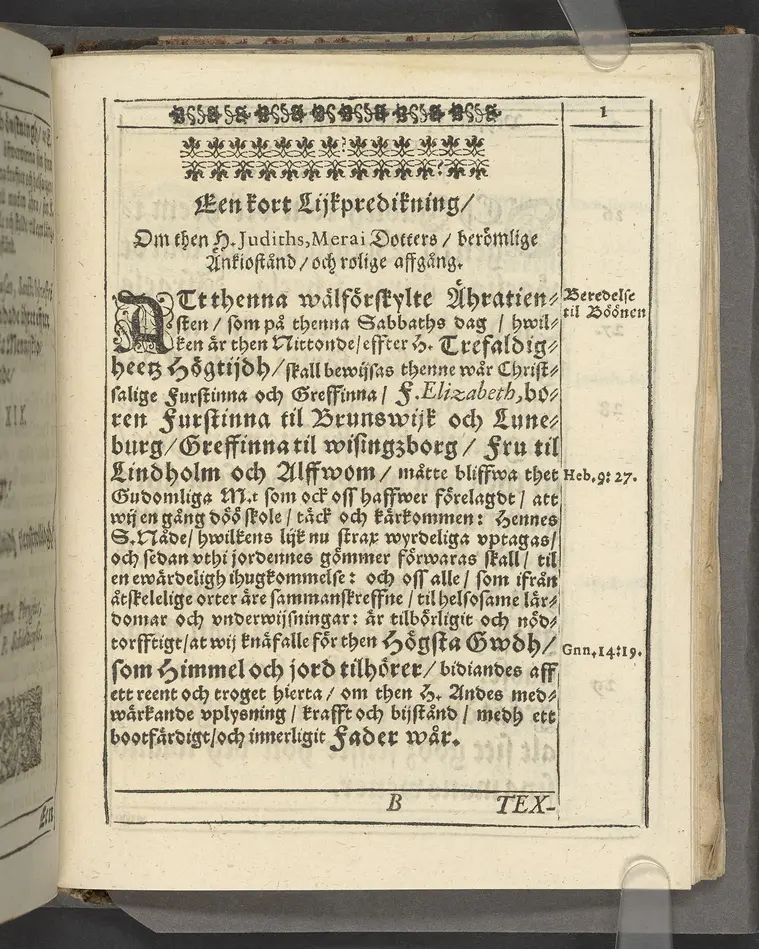 1
Een kort Lijkpredikning/
Om then H. Judiths, Merai Dotters / berömlige
Änkiostånd / och rolige affgång.
ATt thenna wälförskylte Ähratien-
sten / som på thenna Sabbaths dag / hwil-
ken är then Nittonde / effter H. Trefaldig-
heetz Högtijdh / skall bewijsas thenne wår Christ-
salige Furstinna och Greffinna / F. Elizabeth, bo-
ren Furstinna til Brunswijk och Lune-
burg / Greffinna til wisingzborg / Fru til
Lindholm och Alffwom / måtte bliffwa thet
Gudomliga M.t som ock oss haffwer förelagdt / att
wij en gång döö skole / täck och kärkommen: Hennes
S. Nåde / hwilkens lijk nu strax wyrdeliga vptagas /
och sedan vthi jordennes gömmer förwaras skall / til
en ewärdeligh ihugkommelse: och oss alle / som ifrån
åtskelelige orter äre sammanskreffne / til helsosame lär-
domar och vnderwijsningar: är tilbörligit och nöd-
torfftigt / at wij knäfalle för then Högsta Gwdh /
som Himmel och jord tilhörer / bidiandes aff
ett reent och troget hierta / om then H. Andes med-
wärkande vplysning / krafft och bijstånd / medh ett
bootfärdigt / och innerligit Fader wår.
Beredelse
til Böönen
Heb. 9: 27.
Gnn. 14: 19.
B TEX-
XIX.